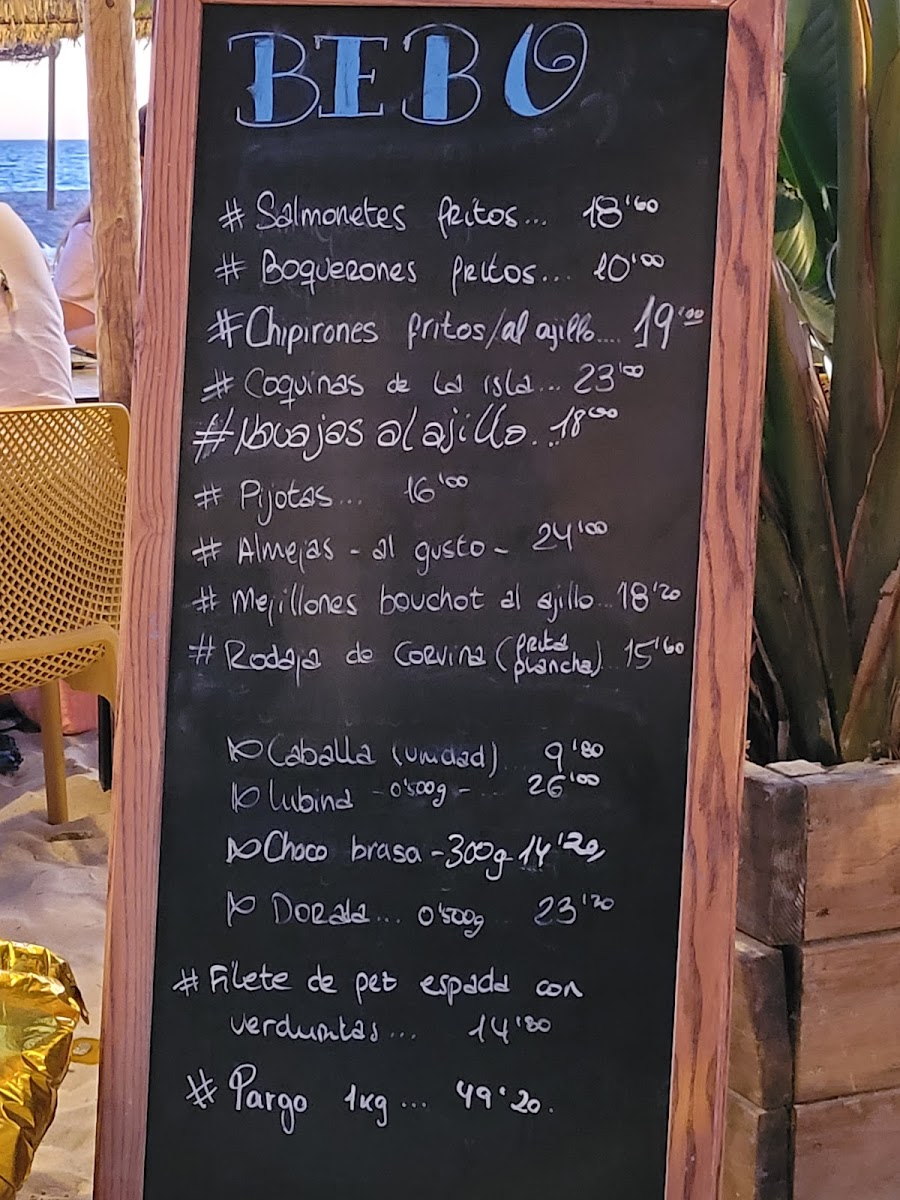 BEBO
# Salmonetes fritos... 18'60
# Boquerones fritos... 10'00
# Chipirones fritos/al ajillo.... 19'00
# Coquinas de la isla... 23'00
# Navajas al ajillo... 18'00
# Pijotas... 16'00
# Almejas - al gusto - 24'00
# Mejillones bouchot al ajillo... 18'20
# Rodaja de Corvina (frita plancha) 15'60
Caballa (unidad) 9'80
lubina - 0'500g - ... 26'00
Choco brasa - 300g 14'20
Dorada... 0'500g 23'20
# Filete de pez espada con
verduritas... 14'80
# Pargo 1kg... 49'20.